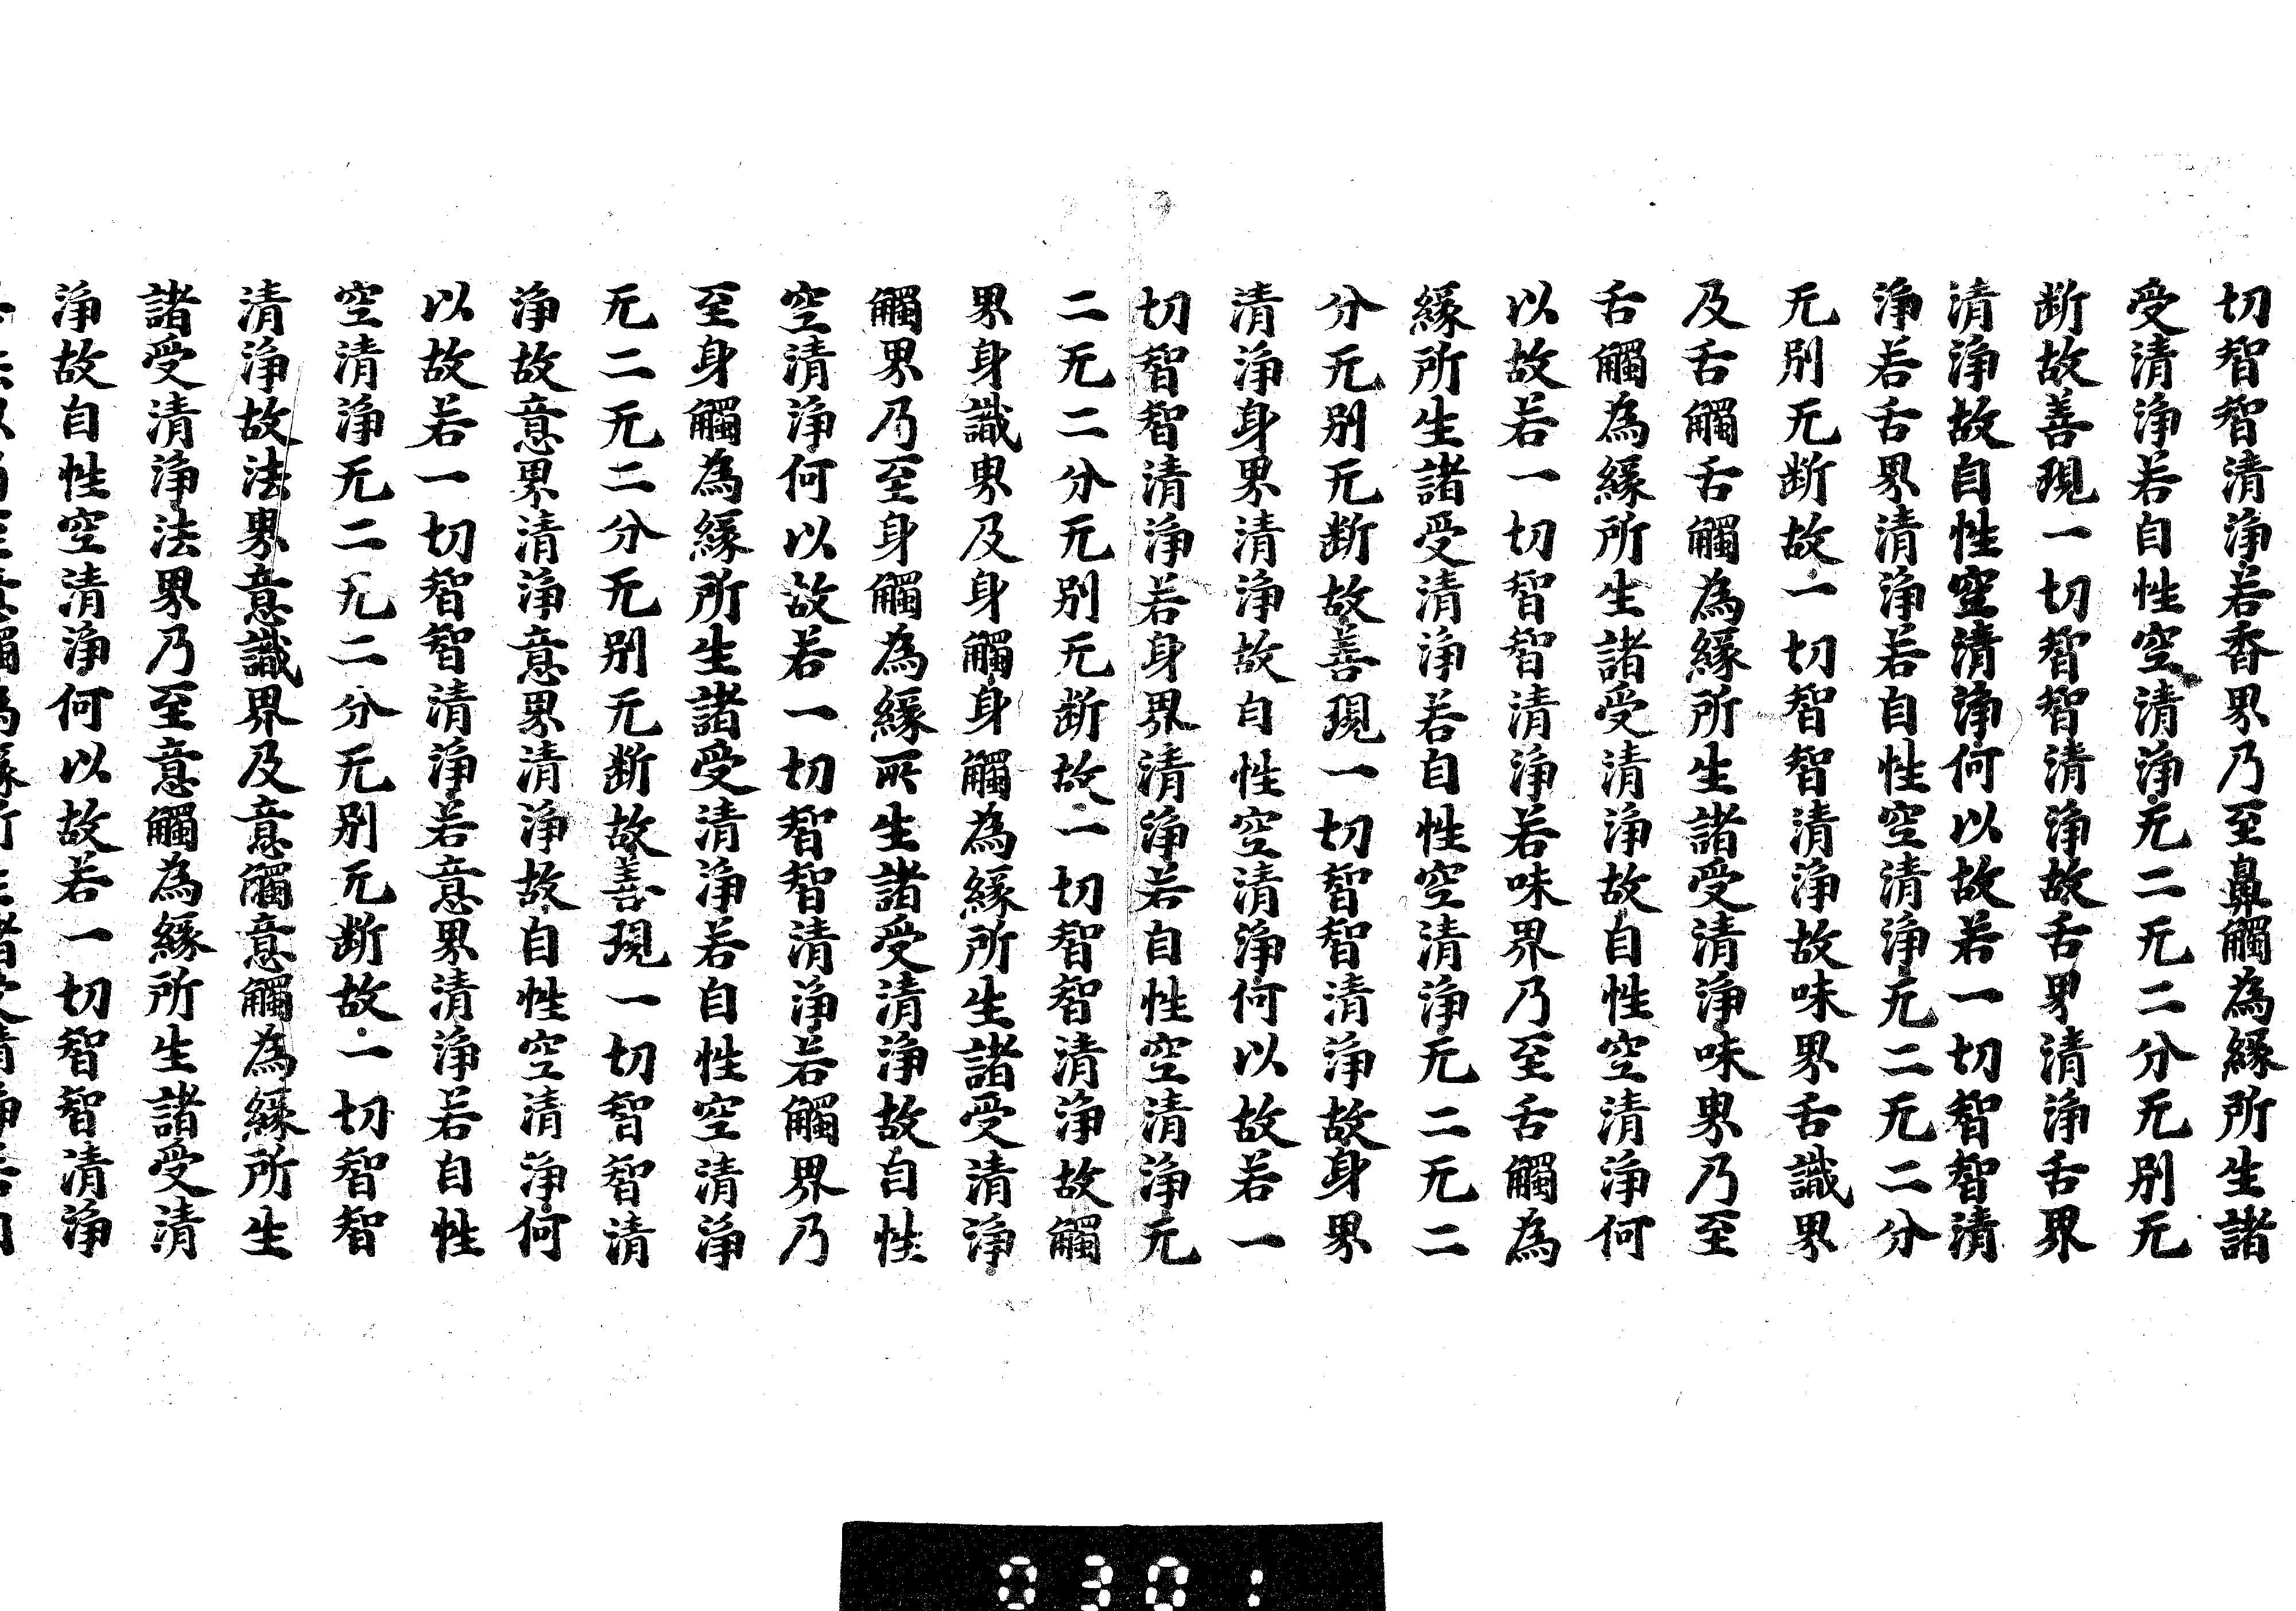 切智智清淨若香界乃至鼻觸為緣所生諸
受清淨若自性空清淨无二无二分无別无
断故善現一切智智清淨故舌界清淨舌界
清淨故自性空清淨何以故若一切智智清
淨若舌界清淨若自性空清淨无二无二分
无別无断故一切智智清淨故味界舌識界
及舌觸舌觸為緣所生諸受清淨味界乃至
舌觸為緣所生諸受清淨故自性空清淨何
以故若一切智智清淨若味界乃至舌觸為
緣所生諸受清淨若自性空清淨无二无二
分无別无断故善現一切智智清淨故身界
清淨身界清淨故自性空清淨何以故若一
切智智清淨若身界清淨若自性空清淨无
二无二分无別无断故一切智智清淨故觸
界身識界及身觸身觸為緣所生諸受清淨
觸界乃至身觸為緣所生諸受清淨故自性
空清淨何以故若一切智智清淨若觸界乃
至身觸為緣所生諸受清淨若自性空清淨
无二无二分无別无断故善現一切智智清
淨故意界清淨意界清淨故自性空清淨何
以故若一切智智清淨若意界清淨若自性
空清淨无二无二分无別无断故一切智智
清淨故法界意識界及意觸意觸為緣所生
諸受清淨法界乃至意觸為緣所生諸受清
淨故自性空清淨何以故若一切智智清淨
0301